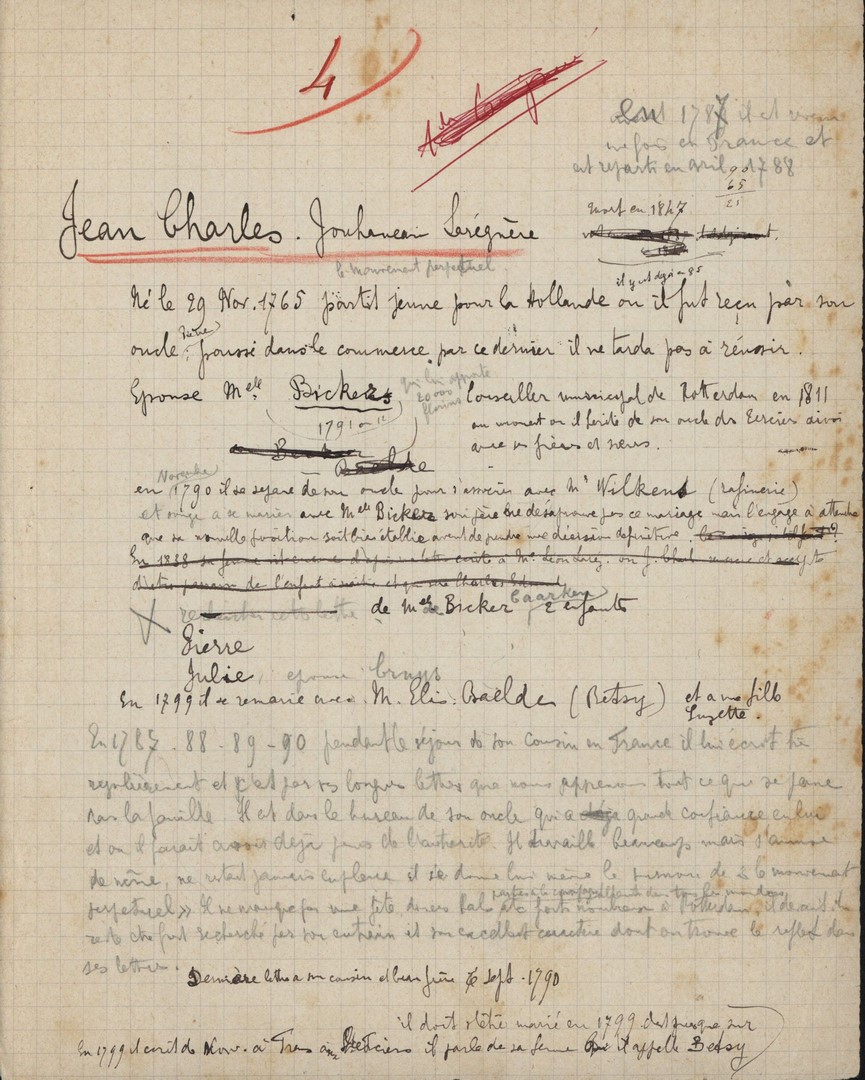 4
1787 il est venu
une fois en France et
est reparti en avril 1788
90
65
21
mort en 1847
Jean Charles. Jouhaneau Larégnère
le mouvement perpétuel
il y est déjà en 85
Né le 29 Nov. 1765 partit jeune pour la Hollande où il fut reçu par son
oncle Pierre; poussé dans le commerce par ce dernier il ne tarda pas à réussir.
Epouse Melle Bickers
qui lui apporte
20000
florins
Conseiller municipal de Rotterdam en 1811
au moment où il hérite de son oncle des Eerciers ainsi
avec ses frères et sœurs.
1791 ou
Baelde
Novembre
en 1790 il se sépare de son oncle pour s'associer avec Mr Wilkens (rafinerie)
et songe à se marier avec Melle Bicker son père ne désaprouve pas ce mariage mais l'engage à attendre
que sa nouvelle position soit bien établie avant de prendre une décision définitive.
En 1838 sa femme
d'être parrain de l'enfant à naître et
de Melle Bicker Caarken 2 enfants
Pierre
Julie, épouse Bruys
En 1799 il se remarie avec M. Elis. Baelde (Betsy) et a une fille
Suzette.
En 1787 - 88 - 89 - 90 pendant le séjour de son cousin en France il lui écrit très
régulièrement et c'est par ses longues lettres que nous apprenons tout ce que se passe
dans la famille. Il est dans le bureau de son oncle qui a grande confiance en lui
et où il paraît avoir déjà pas de l'autorité. Il travaille beaucoup mais s'amuse
de même, ne restait jamais en place et se donne lui même le surnom de « le mouvement
perpétuel » Il ne manque pas une fête, dîners, bals etc fort nombreux à Rotterdam, il devait
reste être fort recherché par son entrain et son excellent caractère dont on trouve le reflet dans
ses lettres.
Dernière lettre à son cousin et beau frère 6 Sept. 1790
il doit s'être marié en 1799 c'est presque sûr
En 1799 il écrit de Nov. à aux Eerciers il parle de sa femme qu'il appelle Betsy